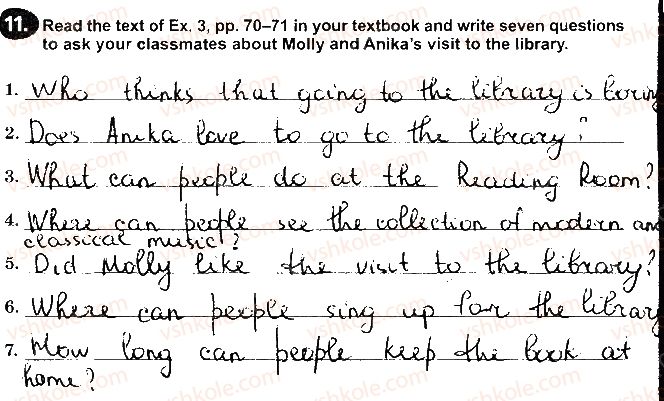 11. Read the text of Ex. 3, pp. 70–71 in your textbook and write seven questions
to ask your classmates about Molly and Anika's visit to the library.
1. Who thinks that going to the library is boring
2. Does Anika love to go to the library?
3. What can people do at the Reading Room?
4. Where can people see the collection of modern and
classical music?
5. Did Molly like the visit to the library?
6. Where can people sing up for the library
7. How long can people keep the book at
home?